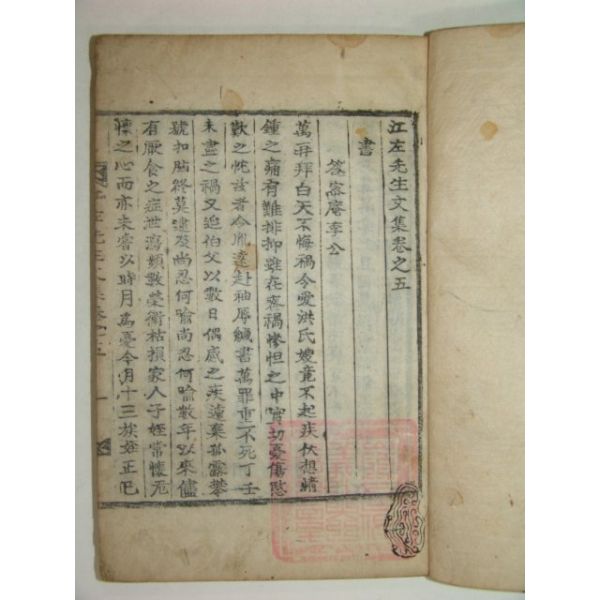 江左先生文集卷之五
書
答密庵李公
萬一再拜白天不悔禍今愛洪氏嫂竟不起疾伏想情
鍾之痛有難排抑雖在喪禍慘怛之中實切憂傷愁
歎之忱玆者令胤遠赴袖辱緘書萬罪重不死丁壬
未盡之禍又迫伯父以數日偶感之疾遽棄孤露攀
號扣腦終莫逮及尚忍何喩尚忍何喩數年以來儘
有厭食之症世瀉類數榮衛枯損家人子姪常懷
懷之心而亦未嘗以時月爲憂今月十三族姪正